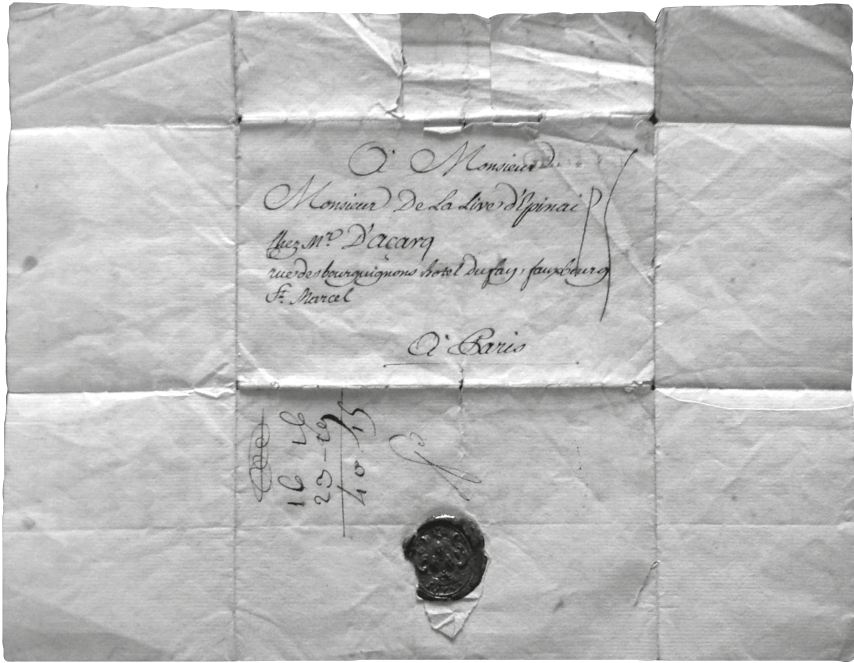 A Monsieur
Monsieur De La Live d'Epinai
chez Mr. D'açarq
rue des bourguignons hotel Dufay, fauxbourg
St. Marcel
A Paris
16 16
23 - 19
40 15